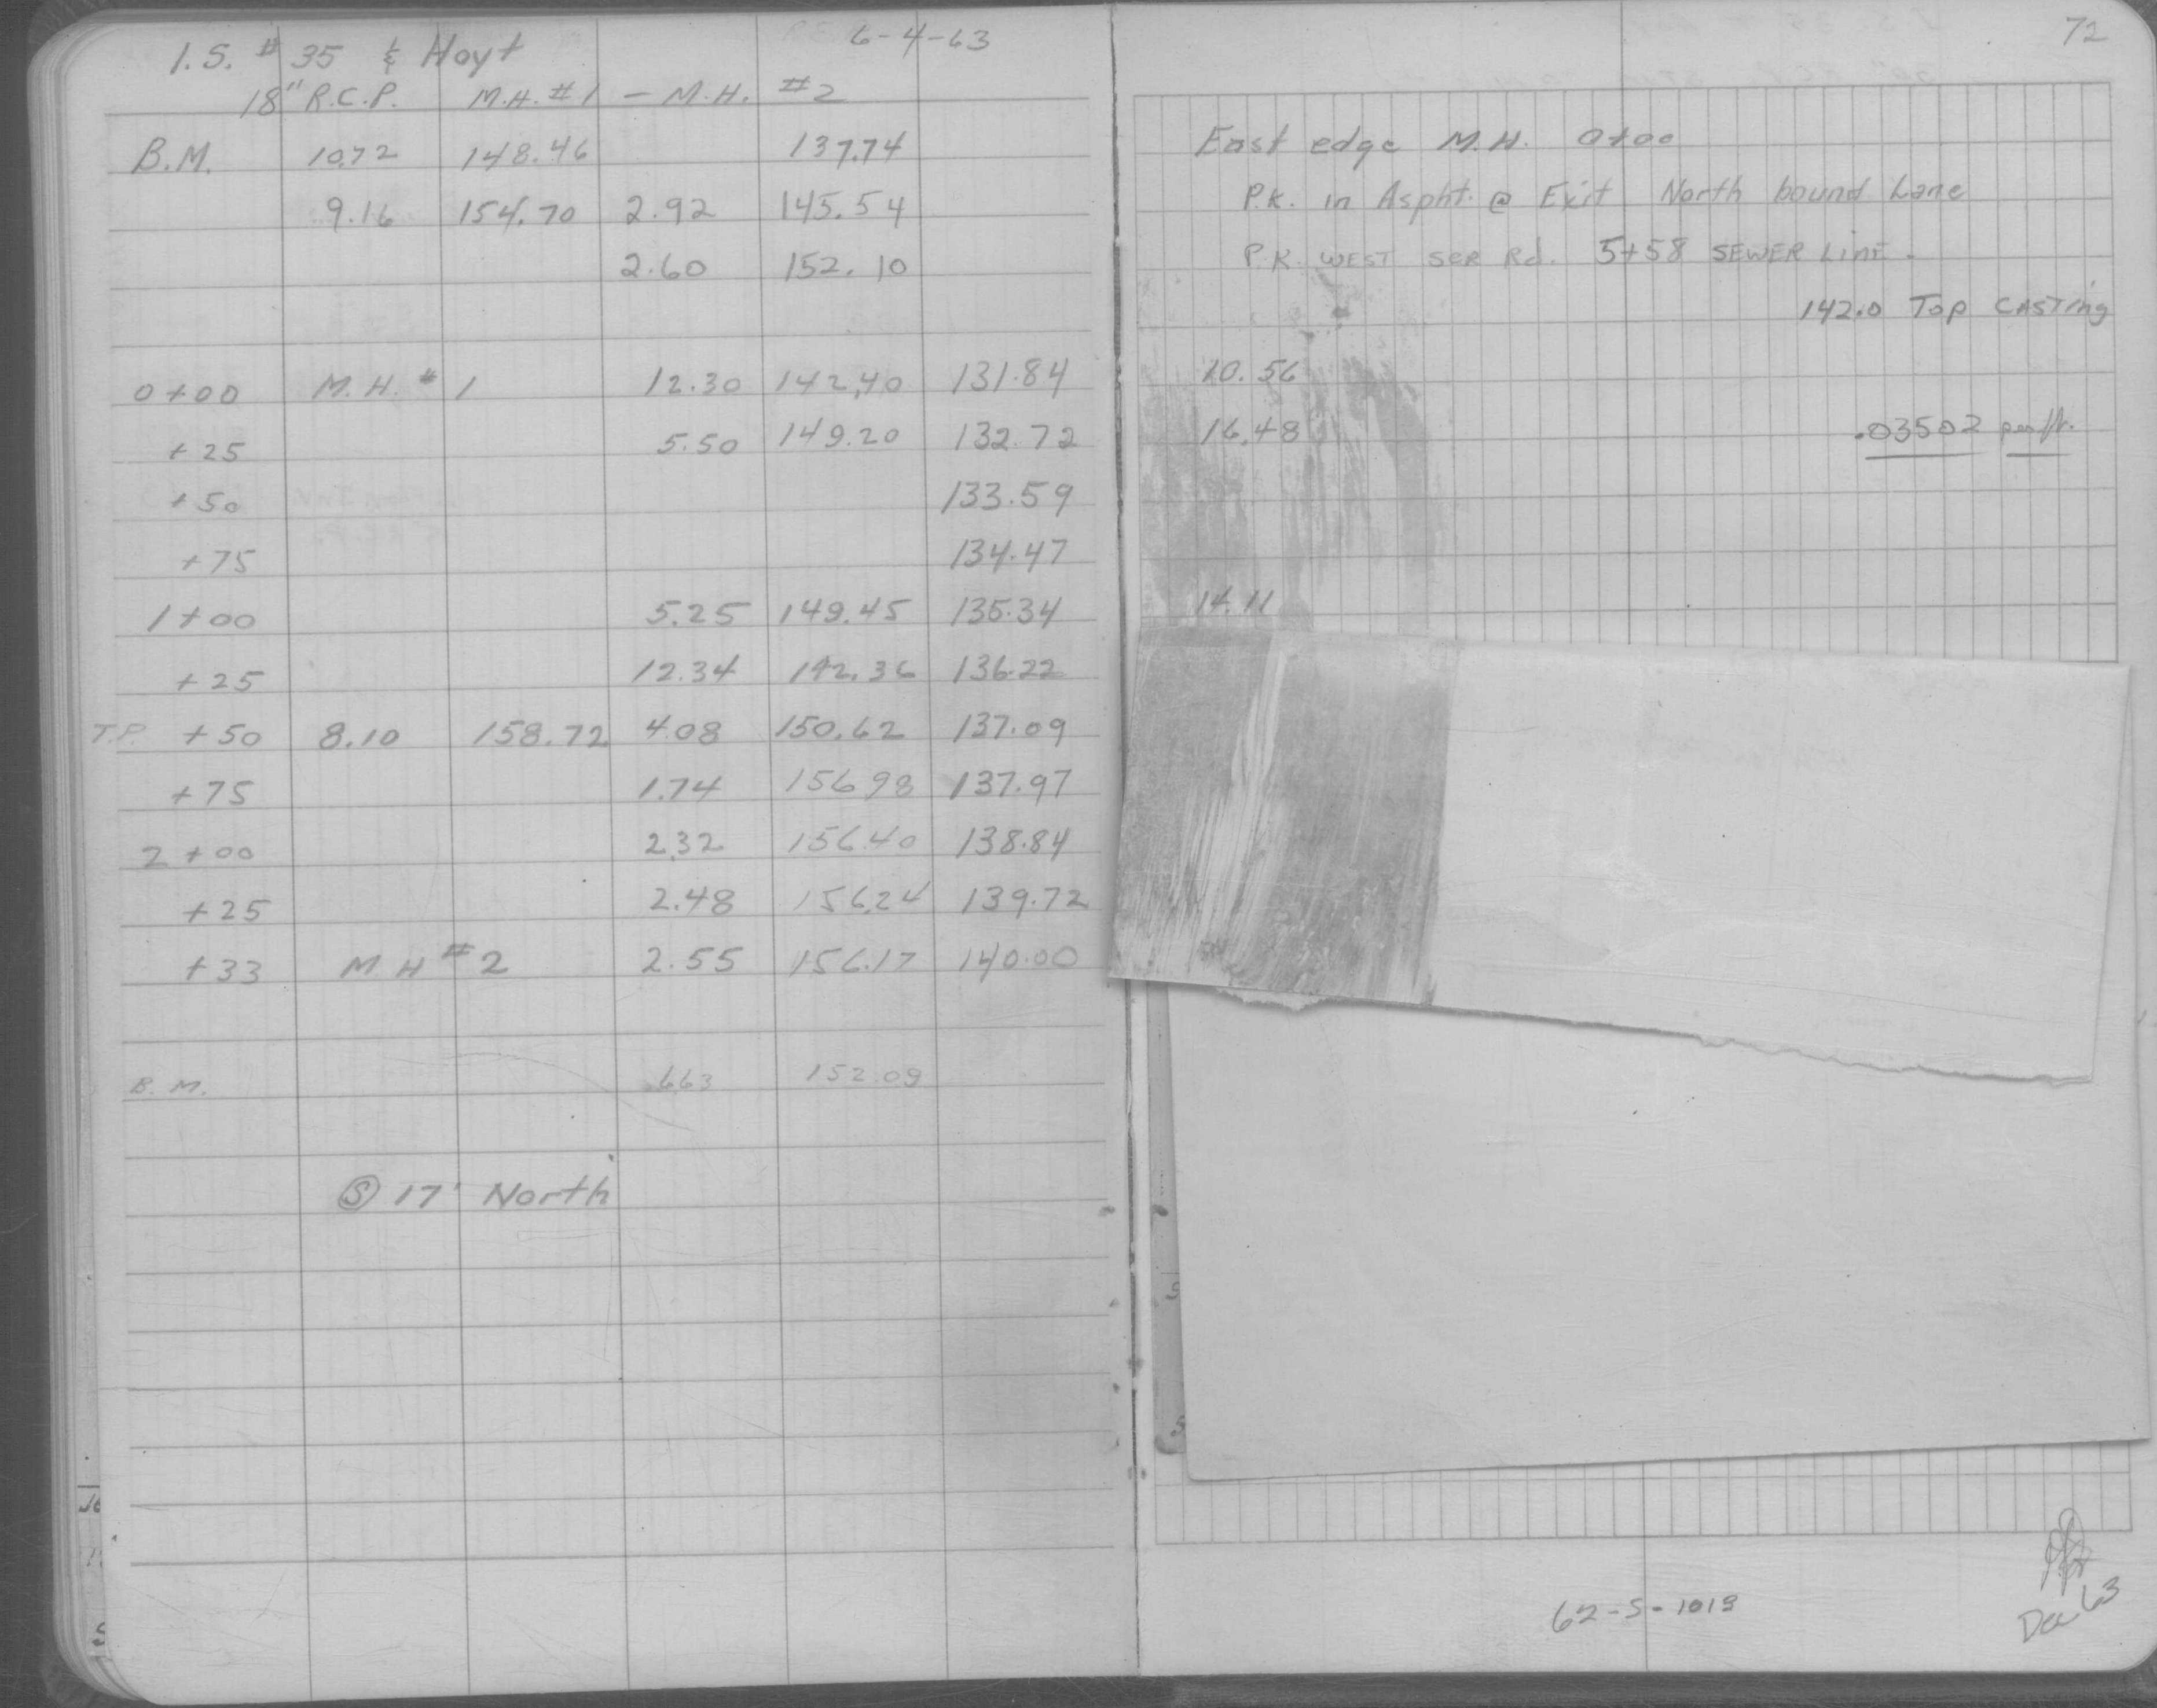 I.S. # 35 & Hoyt 6-4-63
18" R.C.P. M.H. #1 - M.H. #2
B.M. 10.72 148.46 137.74
9.16 154.70 2.92 145.54
2.60 152.10
0+00 M.H. # 1 12.30 142.40 131.84
+25 5.50 149.20 132.72
+50 133.59
+75 134.47
1+00 5.25 149.45 135.34
+25 12.34 142.36 136.22
T.P. +50 8.10 158.72 4.08 150.62 137.09
+75 1.74 156.98 137.97
2+00 2.32 156.40 138.84
+25 2.48 156.24 139.72
+33 M H # 2 2.55 156.17 140.00
B.M. 6.63 152.09
Ⓢ 17' North
72
East edge M.H. 0+00
P.K. in Aspht. @ Exit North bound Lane
P.K. WEST SER Rd. 5+58 SEWER LINE.
142.0 Top CASTing
10.56
16.48 .03502 per ft.
14.11
62-S-1019
Dec 63